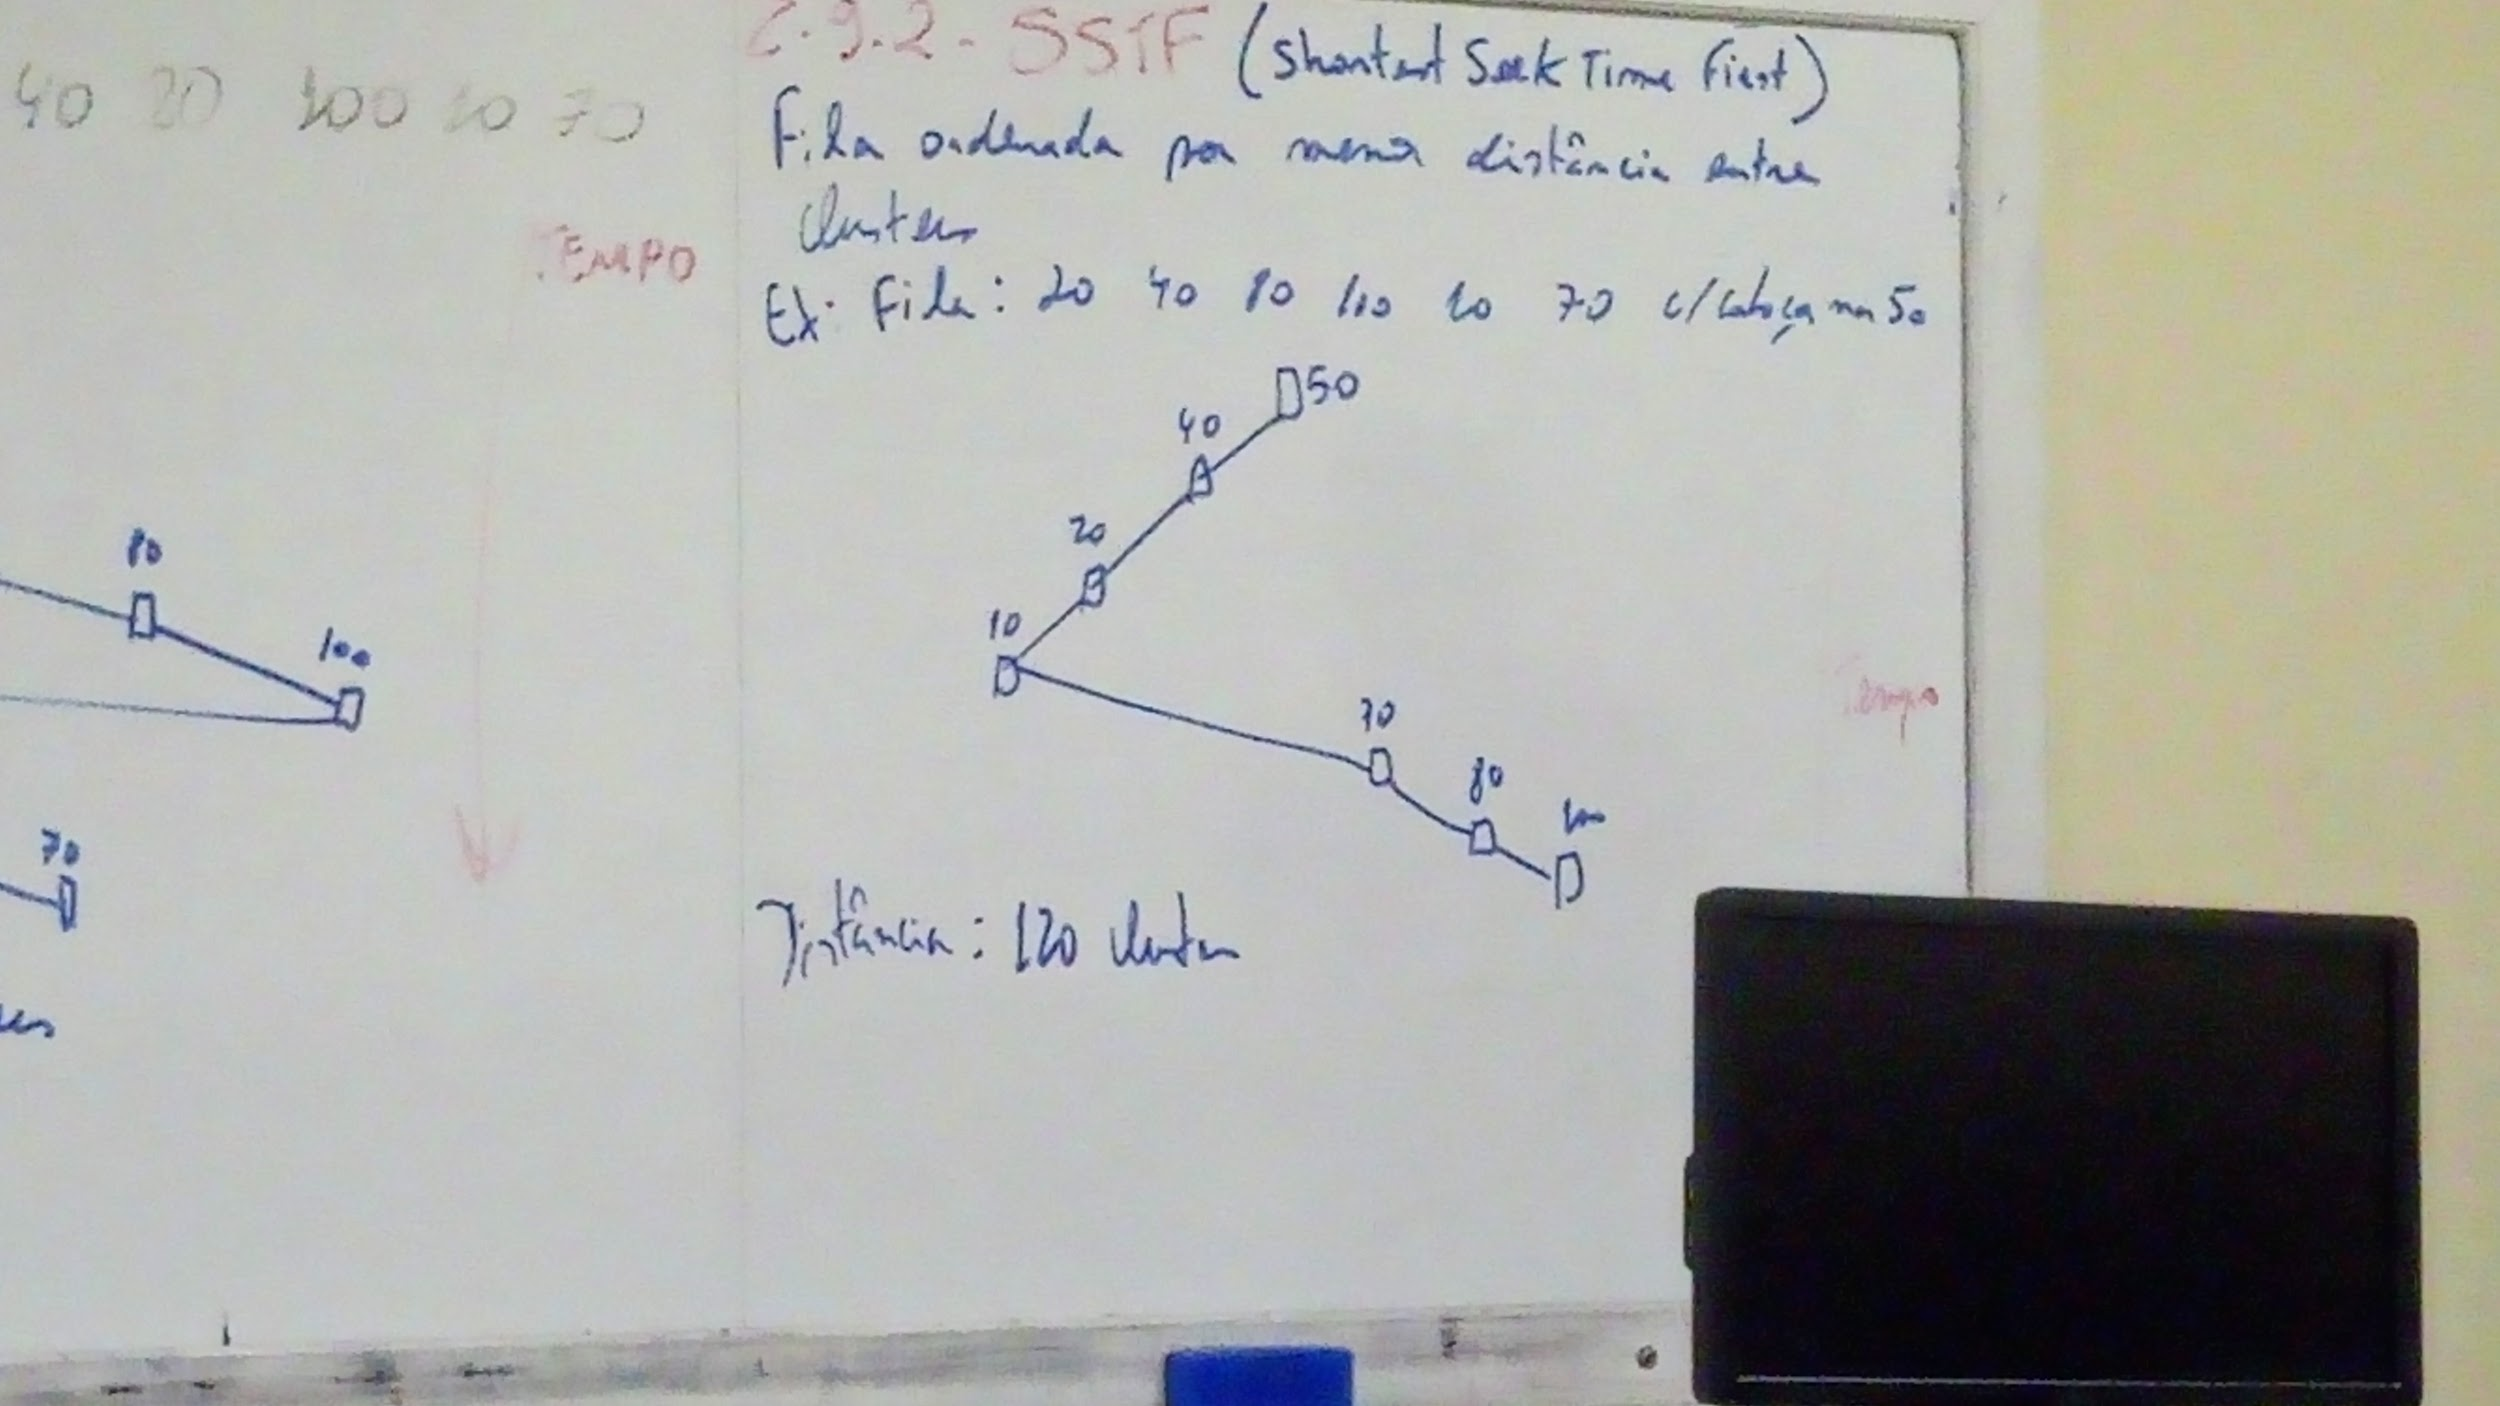 40 80 100 10 70
TEMPO
80
100
70
2.9.2 - SSTF (Shortest Seek Time First)
Fila ordenada por menor distância entre
clusters
Ex: Fila: 20 40 80 100 10 70 c/ cabeça na 50
50
40
20
10
70
80
100
Tempo
Distância: 120 clusters